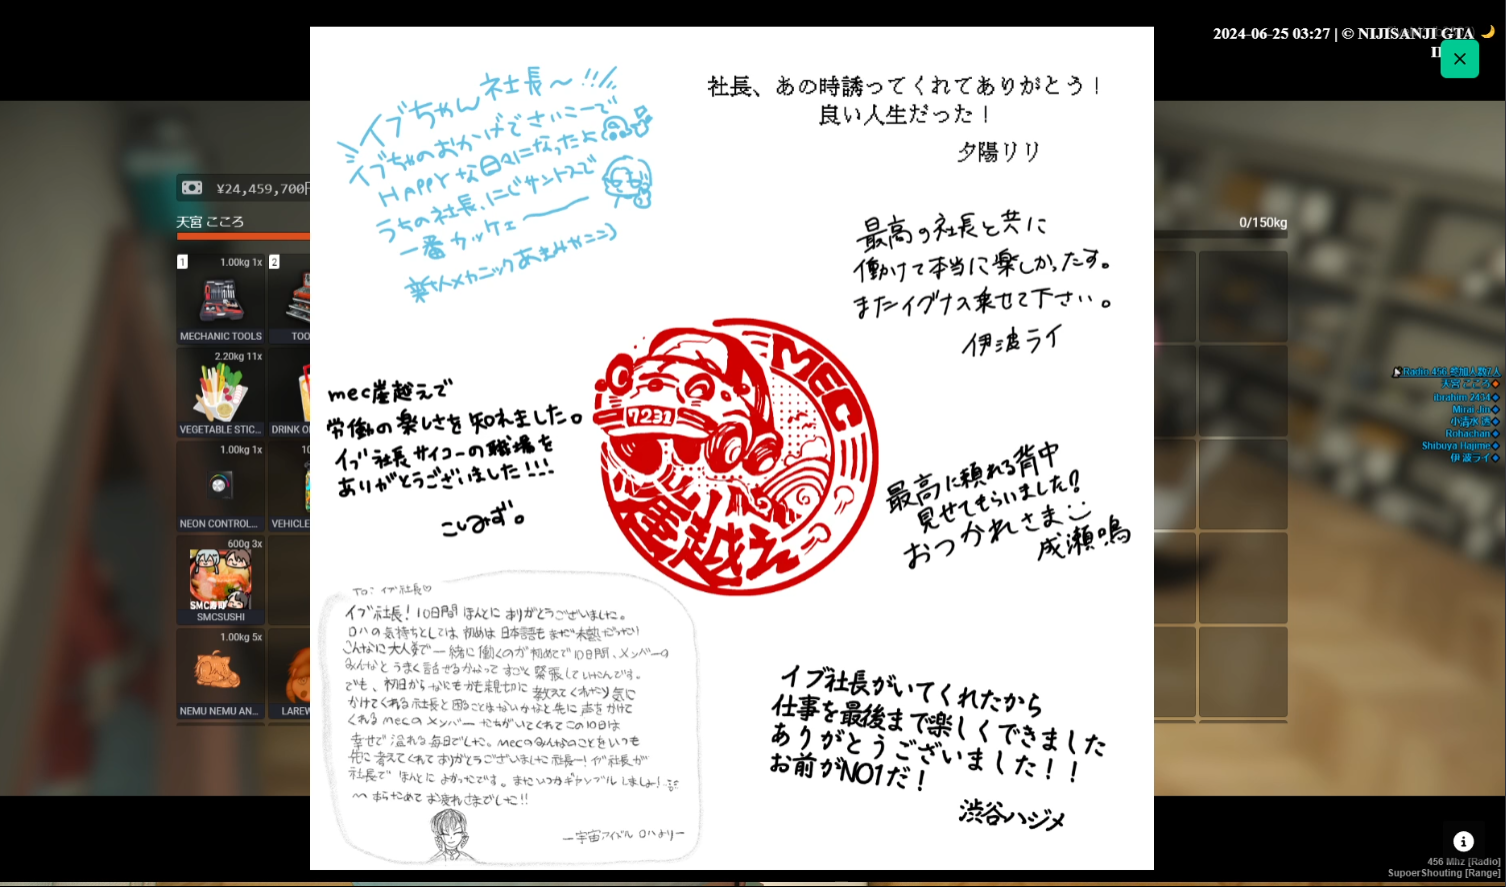 2024-06-25 03:27 | © NIJISANJI GTA
¥24,459,700円
天宮 こころ
0/150kg
1
1.00kg 1x
2
MECHANIC TOOLS
TOO
2.20kg 11x
VEGETABLE STIC...
DRINK O
1.00kg 1x
10
NEON CONTROL...
VEHICLE
600g 3x
SMC寿司
SMCSUSHI
1.00kg 5x
NEMU NEMU AN...
LAREW
イブちゃん社長〜!!!
イブちゃのおかげでさいこーで
HAPPYな日々になったよ
うちの社長、にじサントスで
一番カッケェ
社長、あの時誘ってくれてありがとう！
良い人生だった！
夕陽リリ
最高の社長と共に
働けて本当に楽しかったす。
またイグナス乗せて下さい。
伊波ライ
mec崖越えで
労働の楽しさを知れました。
イブ社長サイコーの職場を
ありがとうございました!!!
こしみず。
MEC
7231
崖越え
最高に頼れる背中
見せてもらいました!
おつかれさま
成瀬鳴
To: イブ社長♡
イブ社長! 10日間 ほんとに ありがとうございました。
ロハの気持ちとしては、初めは 日本語も まだ未熟だったり
こんなに大人数で一緒に働くのが初めてで10日間、メンバーの
みんなと うまく話せるかなって すごく 緊張していたんです。
でも、初日から なにもかも親切に 教えてくれたり 気に
かけてくれる社長と 困ることはないかなと先に 声をかけて
くれる mecの メンバー たちがいてくれて この10日は
幸せで 溢れる毎日でした。mecのみんなのことをいつも
先に 考えてくれて ありがとうございました 社長ー! イブ社長が
社長で ほんとに よかったです。またいつかギャンブル しましょ!
〜 あらためて お疲れさまでした!!
ー宇宙アイドル ロハより一
イブ社長がいてくれたから
仕事を最後まで楽しくできました
ありがとうございました！！
お前がNO1だ！
渋谷ハジメ
Radio 456 参加人数7人
天宮 こころ
ibrahim 2434
Mirai Jin
小清水 透
Rohachan
Shibuya Hajime
伊 波ライ
456 Mhz [Radio]
SupoerShouting [Range]